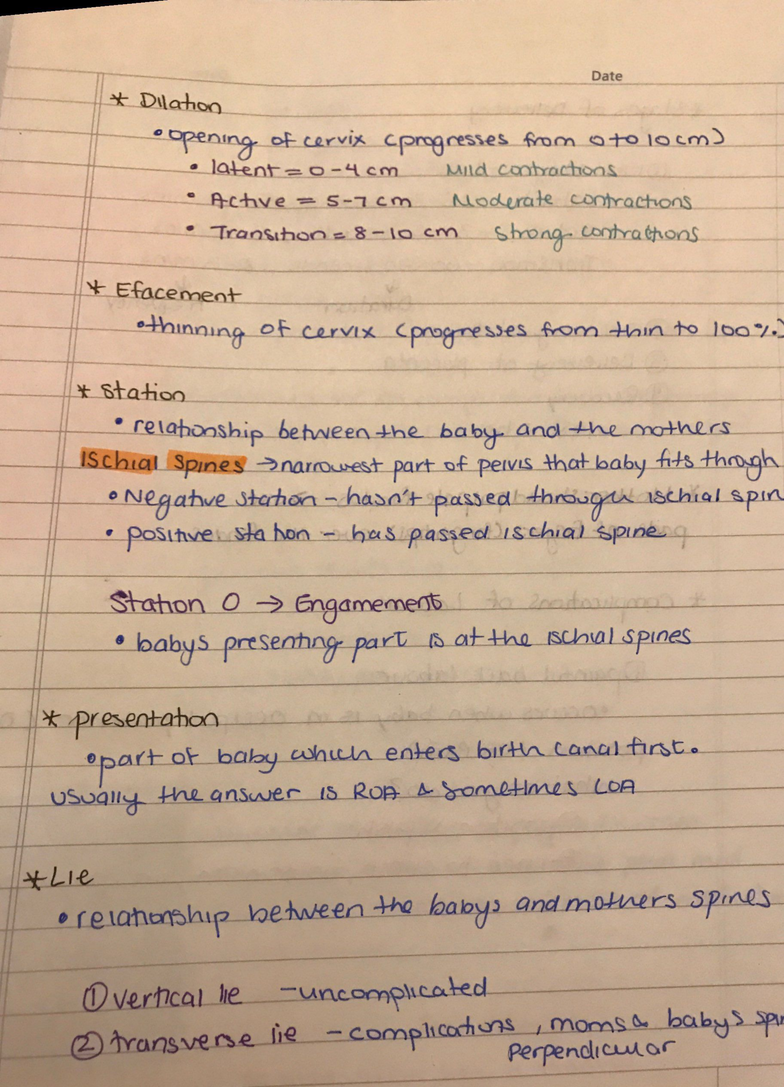 Date
* Dilation
• opening of cervix (progresses from 0 to 10 cm)
• latent = 0-4 cm Mild contractions
• Active = 5-7 cm Moderate contractions
• Transition = 8-10 cm Strong contractions
* Efacement
• thinning of cervix (progresses from thin to 100%)
* Station
• relationship between the baby and the mothers
Ischial Spines → narrowest part of pelvis that baby fits through
• Negative station - hasn't passed through ischial spin
• positive station - has passed ischial spine
Station 0 → Engamement
• babys presenting part is at the ischial spines
* presentation
• part of baby which enters birth canal first.
usually the answer is ROA & sometimes LOA
* Lie
• relationship between the babys and mothers spines
① vertical lie - uncomplicated
② transverse lie - complications, moms & babys spi
perpendicular